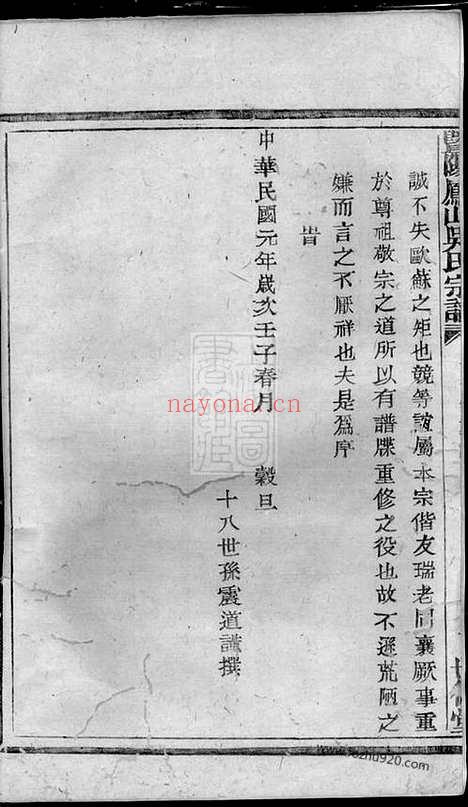 暨陽鳳山吳氏宗譜
誠不失歐蘇之矩也競等誼屬本宗偕友瑞老同襄厥事重
於尊祖敬宗之道所以有譜牒重修之役也故不遜荒陋之
嫌而言之不厭祥也夫是爲序
旹
中華民國元年歲次壬子春月 穀旦
十八世孫震道謹撰
nayona.cn
www.fozhu920.com